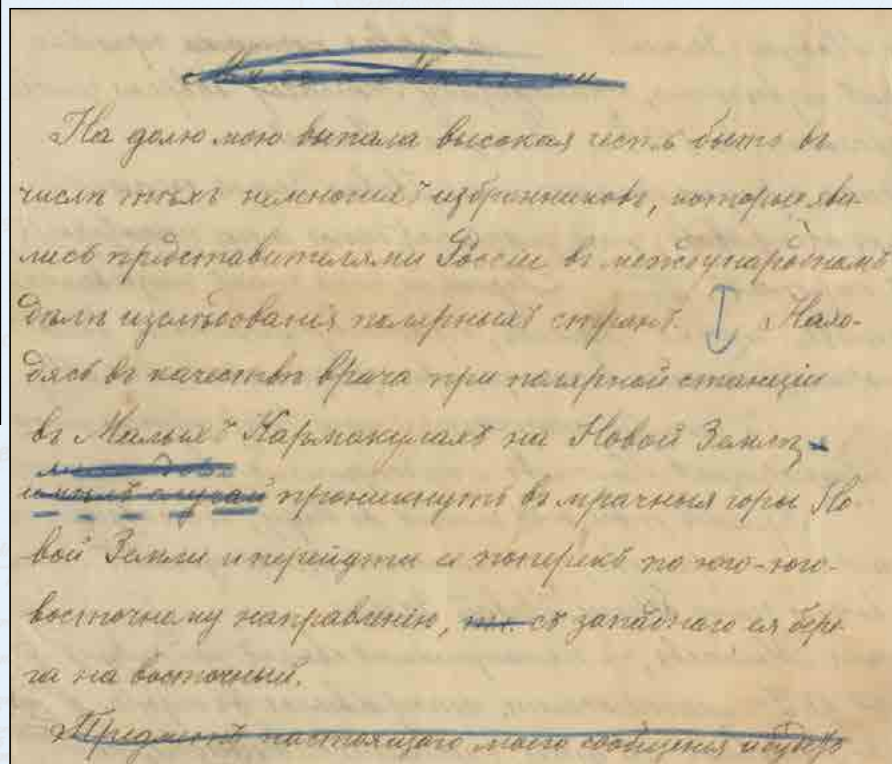 На долю мою выпала высокая честь быть въ
числѣ тѣхъ немногихъ избранниковъ, которые яви-
лись представителями Россіи въ международномъ
дѣлѣ изслѣдованія полярныхъ странъ. Нахо-
дясь въ качествѣ врача при полярной станціи
въ Малыхъ Кармакулахъ на Новой Землѣ,
имѣлъ случай проникнуть въ мрачныя горы Но-
вой Земли и перейдти ея поперекъ по юго-юго-
восточному направленію, съ западнаго ея бере-
га на восточный.
Предметъ настоящаго моего сообщенія и будетъ